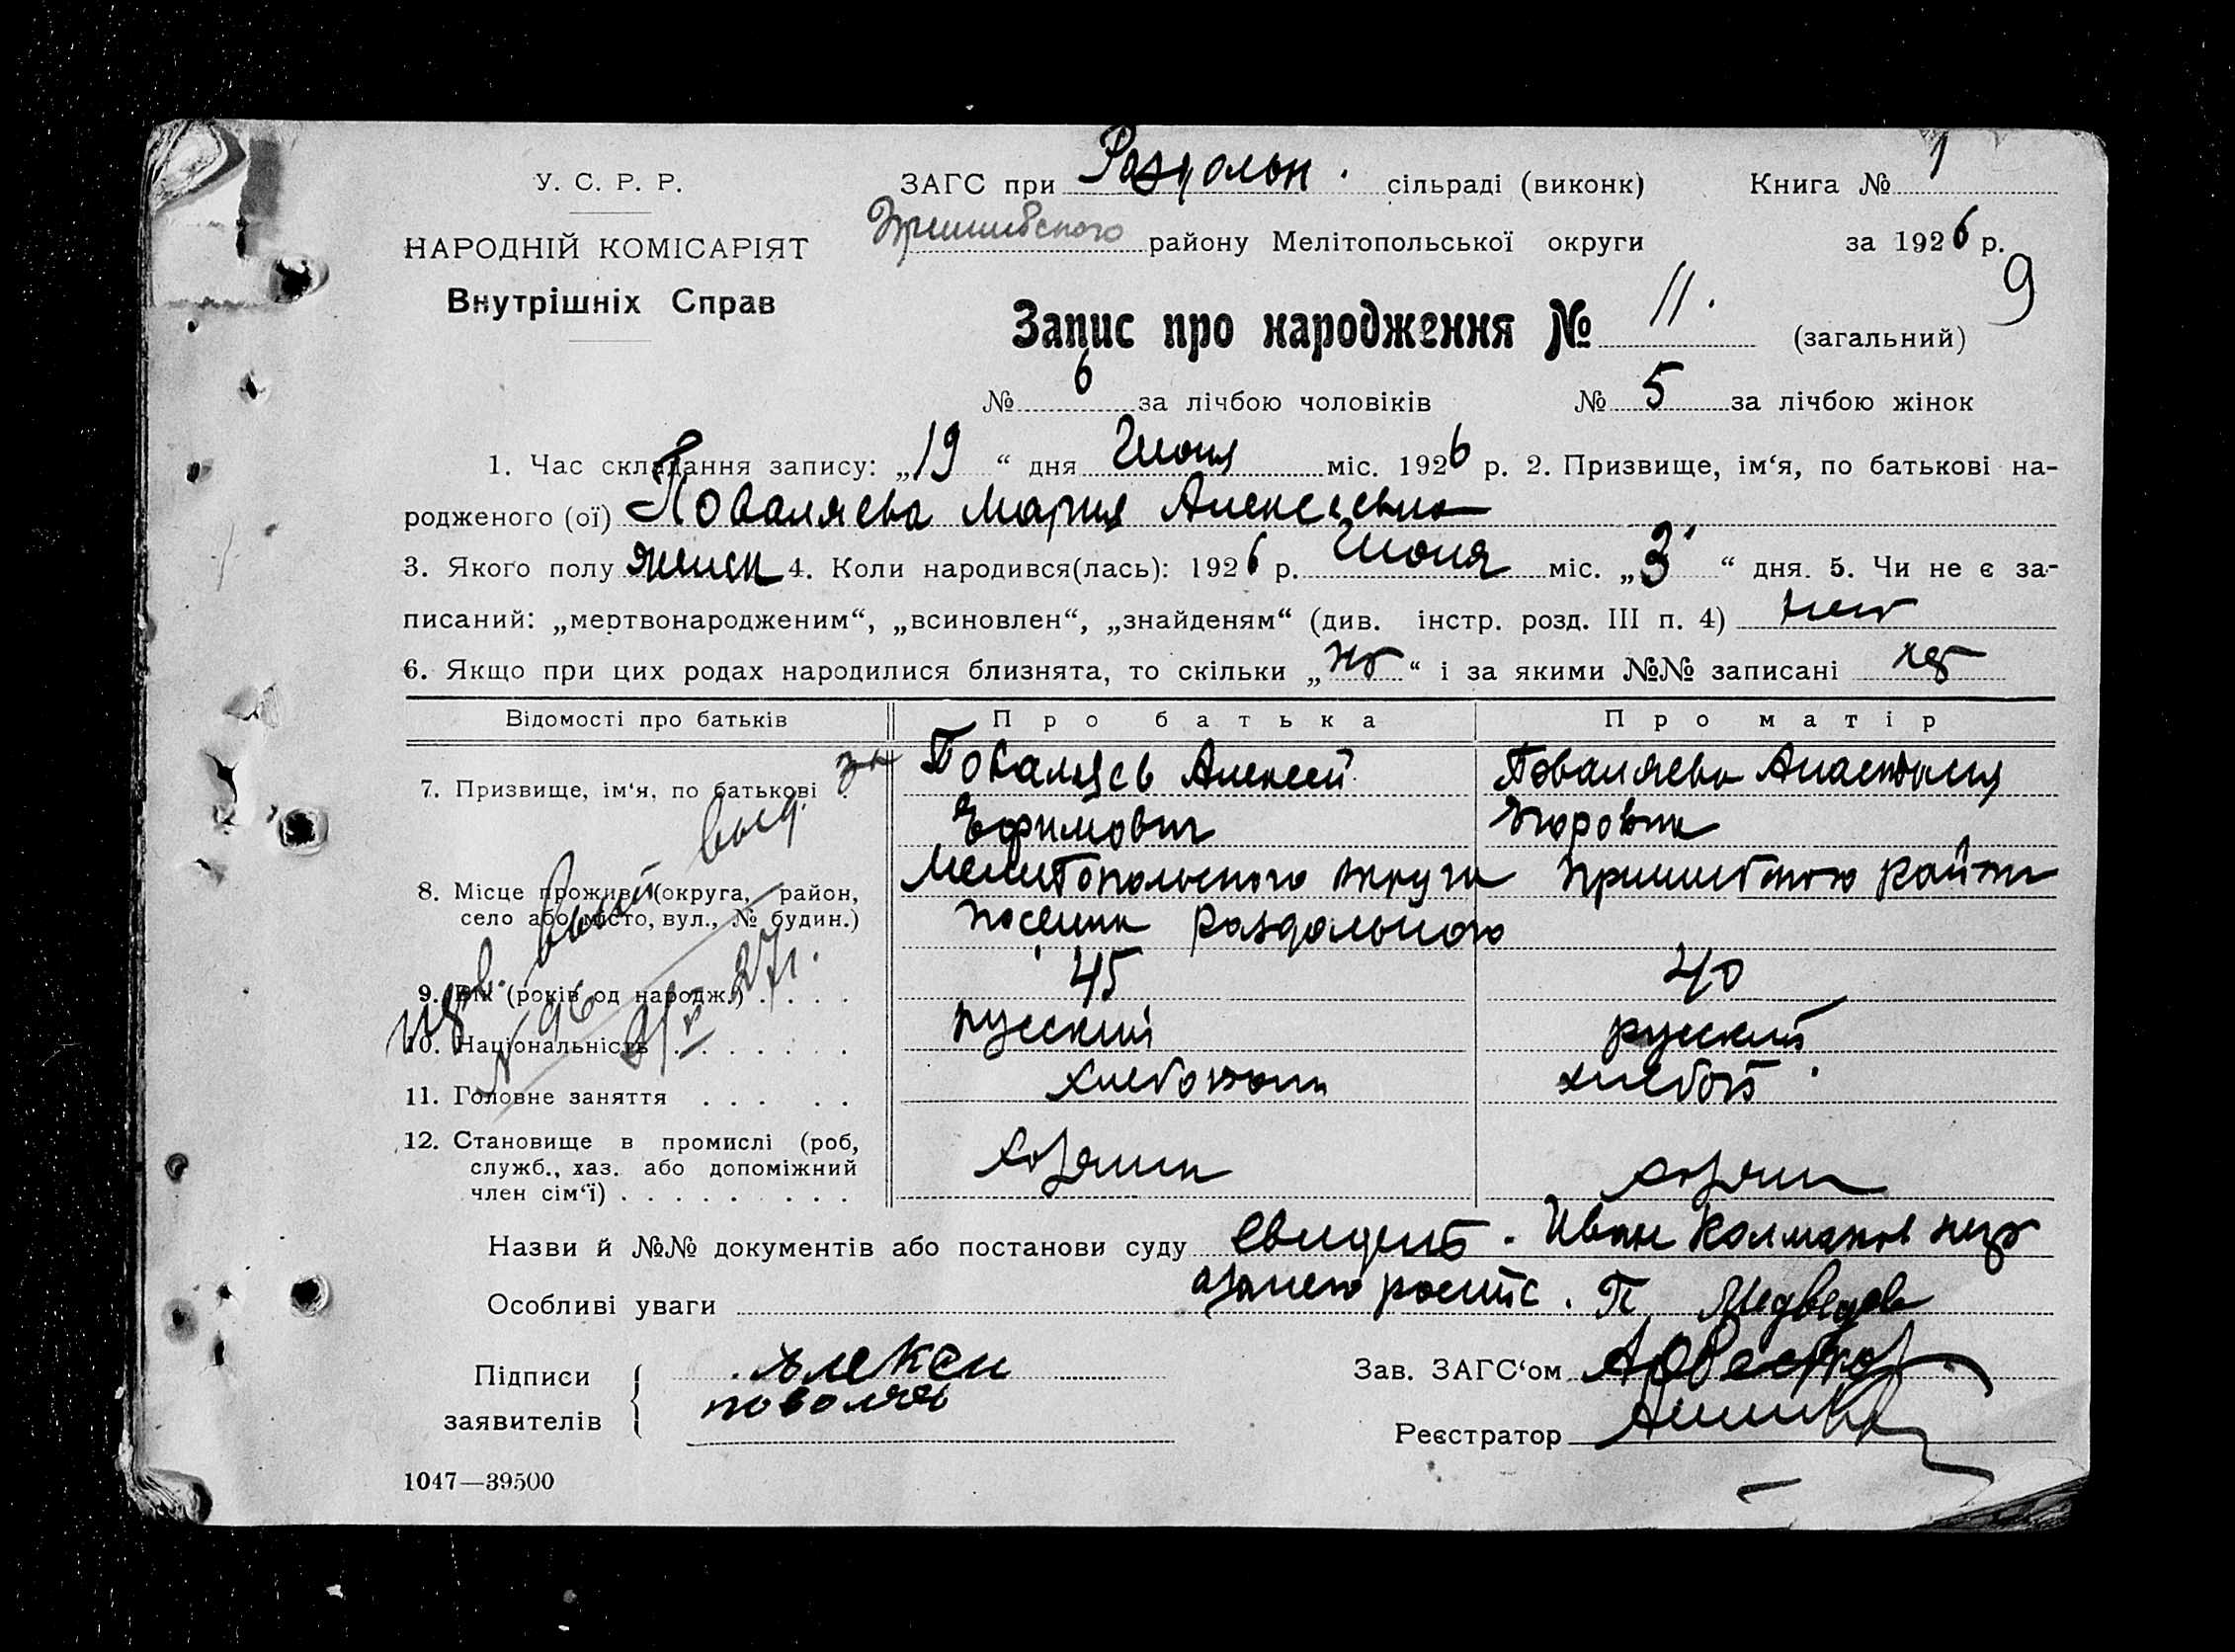 У. С. Р. Р.
НАРОДНІЙ КОМІСАРІЯТ
Внутрішніх Справ
ЗАГС при Раздольн. сільраді (виконк) Книга № 1
Пришибского району Мелітопольської округи за 1926 р.
9
Запис про народження № 11. (загальний)
№ 6 за лічбою чоловіків № 5 за лічбою жінок
1. Час складання запису: „19“ дня Июня міс. 1926 р. 2. Призвище, ім‘я, по батькові на-
родженого (ої) Поваляева Мария Алексеевна
3. Якого полу женск 4. Коли народився(лась): 1926 р. Июня міс. „3“ дня. 5. Чи не є за-
писаний: „мертвонародженим“, „всиновлен“, „знайденям“ (див. інстр. розд. III п. 4) нет
6. Якщо при цих родах народилися близнята, то скільки „нт“ і за якими №№ записані нет
Відомості про батьків Про батька Про матір
7. Призвище, ім‘я, по батькові . Поваляев Алексей Поваляева Анастасия
Ефимович Егоровна
8. Місце прожив. (округа, район, Мелитопольского округа Пришибского района
село або місто, вул., № будин.) поселка Раздольного
9. Вік (років од народж.) . . . . 45 40
10. Національність . . . . . . русский русский
11. Головне заняття . . . . . хлебопаш хлебоп
12. Становище в промислі (роб, хозяин хозяин
служб., хаз. або допоміжний
член сім‘ї) . . . . . . . . .
выд.
№ 96 21/V 27 г.
Назви й №№ документів або постанови суду Иван Колмаков
Особливі уваги П. Медведев
Підписи заявителів Алексей
поволяев
Зав. ЗАГС‘ом
Реєстратор
1047—39500